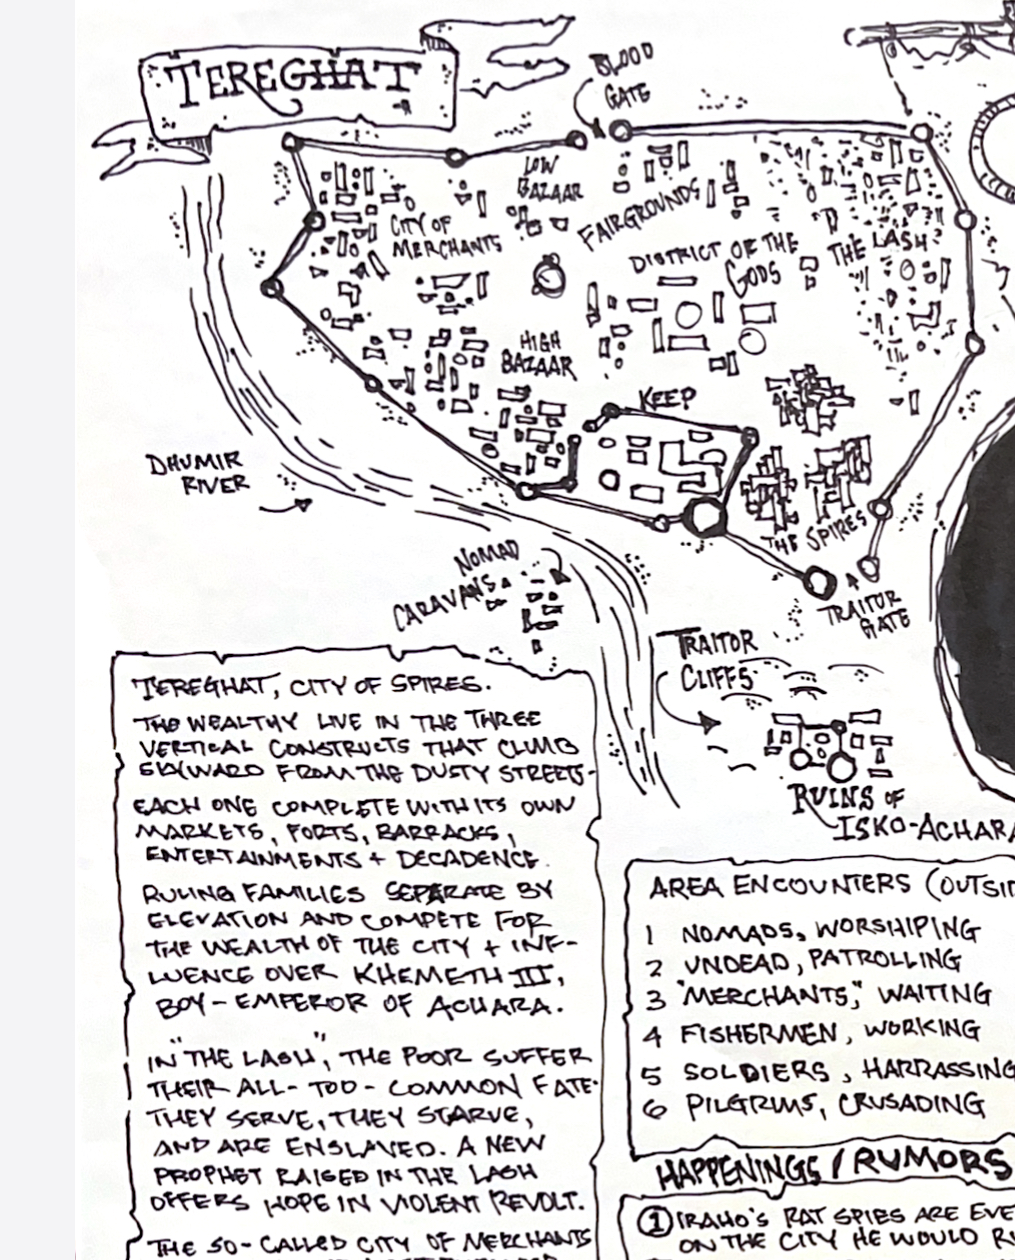 TEREGHAT
BLOOD
GATE
LOW
BAZAAR
CITY OF
MERCHANTS
FAIRGROUNDS
DISTRICT OF THE
GODS
THE LASH
HIGH
BAZAAR
KEEP
DHUMIR
RIVER
THE SPIRES
NOMAD
CARAVANS
TRAITOR
GATE
TRAITOR
CLIFFS
RUINS OF
ISKO-ACHARA
TEREGHAT, CITY OF SPIRES.
THE WEALTHY LIVE IN THE THREE
VERTICAL CONSTRUCTS THAT CLIMB
SKYWARD FROM THE DUSTY STREETS-
EACH ONE COMPLETE WITH ITS OWN
MARKETS, FORTS, BARRACKS,
ENTERTAINMENTS + DECADENCE.
RULING FAMILIES SEPARATE BY
ELEVATION AND COMPETE FOR
THE WEALTH OF THE CITY + INF-
LUENCE OVER KHEMETH III,
BOY-EMPEROR OF ACHARA.
IN "THE LASH", THE POOR SUFFER
THEIR ALL-TOO-COMMON FATE.
THEY SERVE, THEY STARVE,
AND ARE ENSLAVED. A NEW
PROPHET RAISED IN THE LASH
OFFERS HOPE IN VIOLENT REVOLT.
THE SO-CALLED CITY OF MERCHANTS
AREA ENCOUNTERS (OUTSI
1 NOMADS, WORSHIPING
2 UNDEAD, PATROLLING
3 "MERCHANTS," WAITING
4 FISHERMEN, WORKING
5 SOLDIERS, HARRASSING
6 PILGRIMS, CRUSADING
HAPPENINGS / RUMORS
1 IRAHO'S RAT SPIES ARE EVE
ON THE CITY HE WOULD R